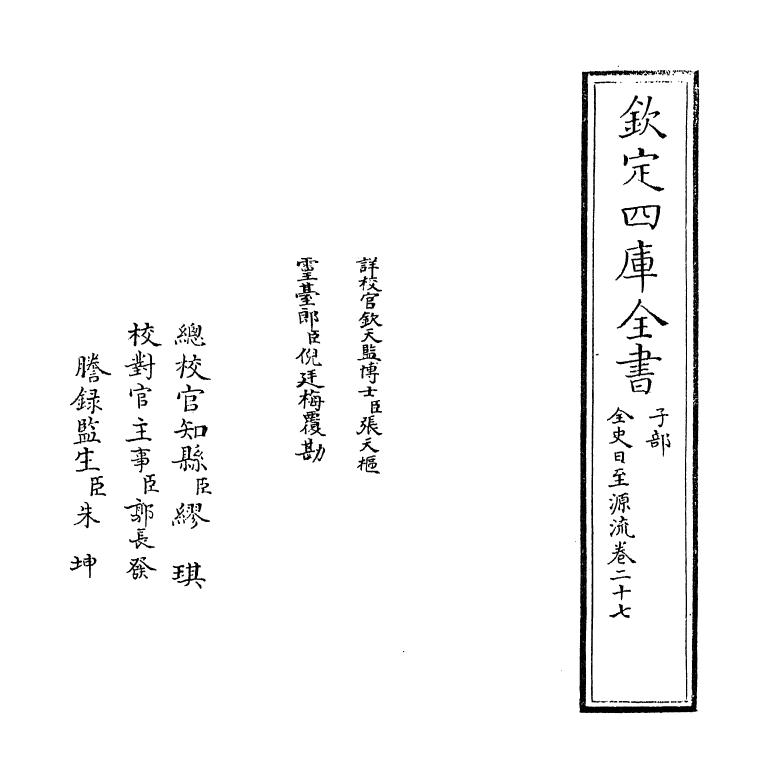 欽定四庫全書
子部
全史日至源流卷二十七
詳校官欽天監博士臣張天樞
靈臺郎臣倪廷梅覆勘
總校官知縣臣繆琪
校對官主事臣郭長發
謄録監生臣朱坤